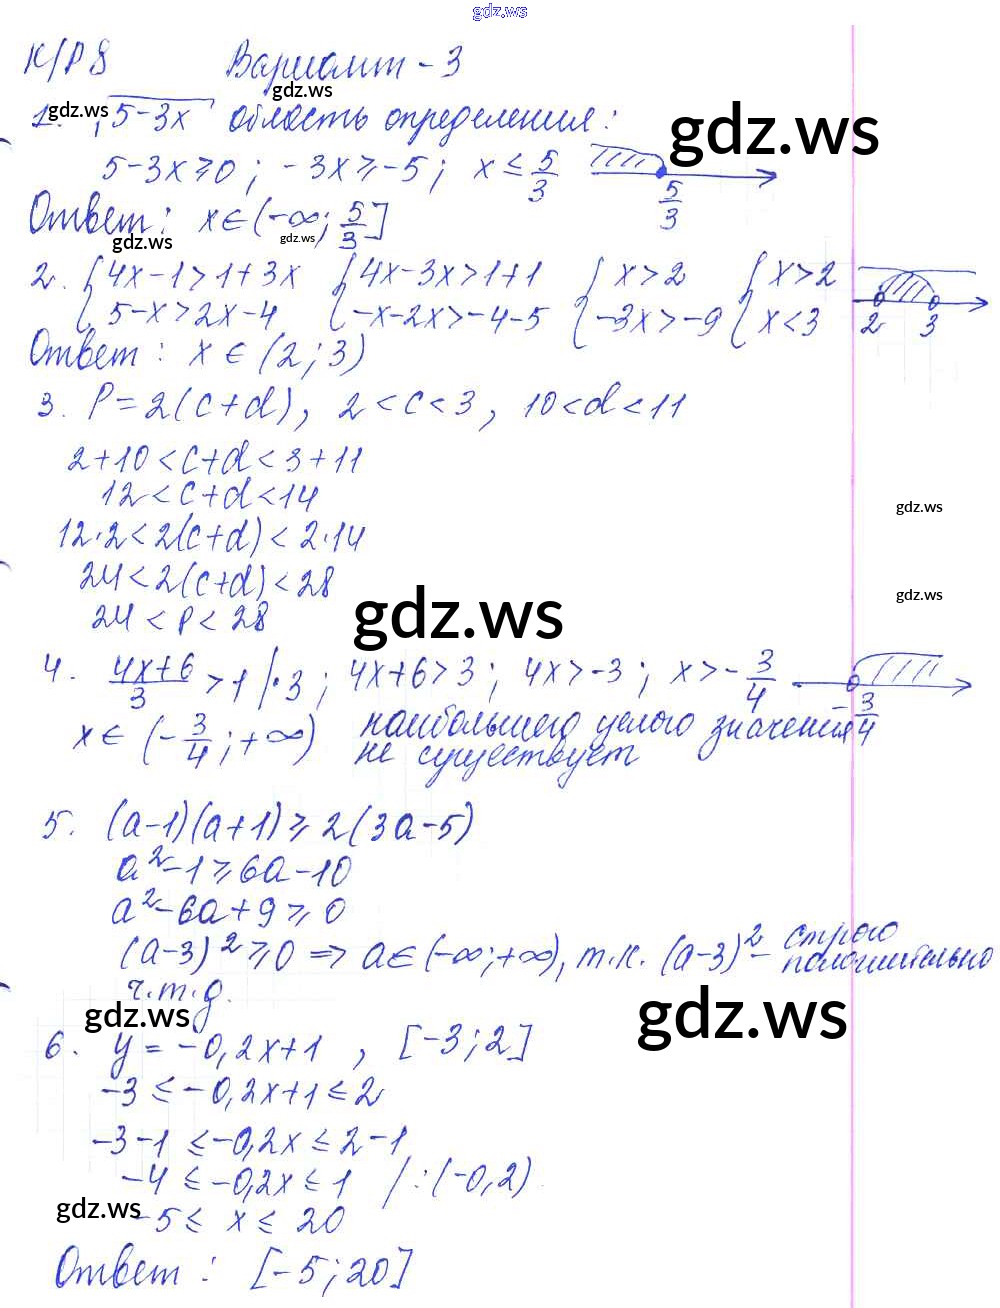 gdz.ws
К/Р 8 Вариант - 3
gdz.ws gdz.ws
1. √5-3x область определения: gdz.ws
5-3x⩾0; -3x⩾-5; x ≤ 5/3 5/3
Ответ: x∈(-∞; 5/3]
gdz.ws gdz.ws
2. { 4x-1>1+3x { 4x-3x>1+1 { x>2 { x>2
5-x>2x-4 -x-2x>-4-5 -3x>-9 x<3 2 3
Ответ: x∈(2;3)
3. P=2(c+d), 2<c<3, 10<d<11
2+10<c+d<3+11
12<c+d<14
gdz.ws
12·2<2(c+d)<2·14
24<2(c+d)<28
gdz.ws gdz.ws
24<P<28
4. 4x+6/3 >1 |·3; 4x+6>3; 4x>-3; x>-3/4 -3/4
x∈(-3/4;+∞) наибольшего целого значения
не существует
5. (a-1)(a+1)⩾2(3a-5)
a²-1⩾6a-10
a²-6a+9⩾0
(a-3)²⩾0 ⇒ a∈(-∞;+∞), т.к. (a-3)² - строго
положительно
ч.т.д.
gdz.ws gdz.ws
6. y=-0,2x+1, [-3;2]
-3≤-0,2x+1≤2
-3-1≤-0,2x≤2-1
-4≤-0,2x≤1 /:(-0,2)
gdz.ws
-5≤x≤20
Ответ: [-5;20]